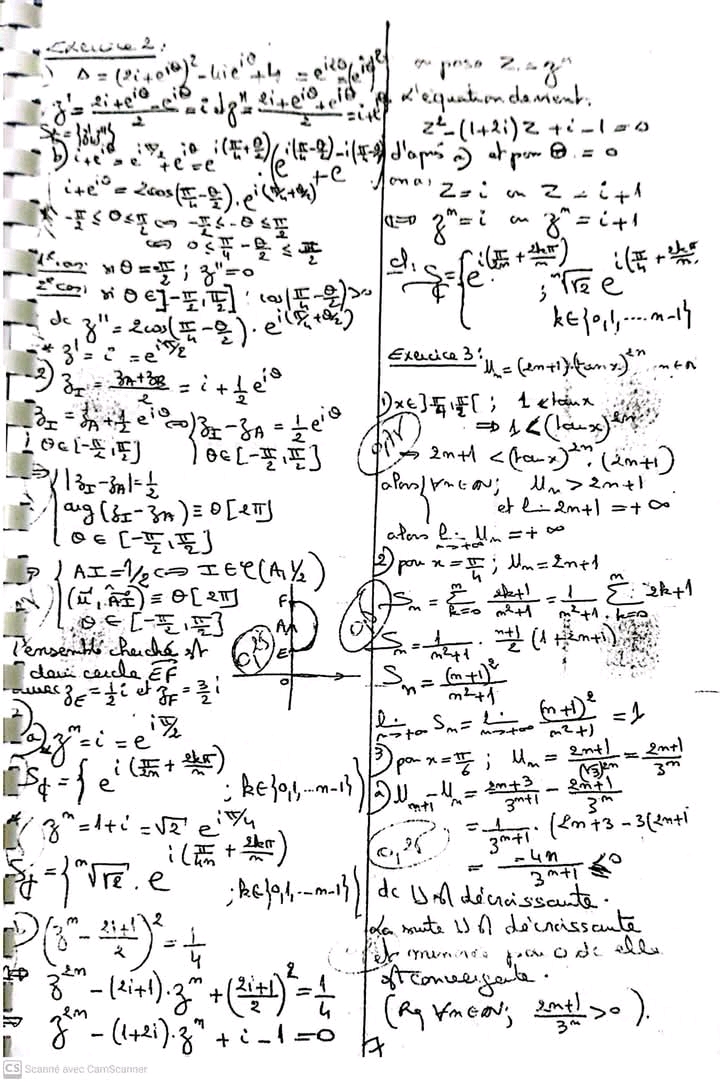 Exercice 2:
Δ = (2i+e^{iθ})² - 4ie^{iθ} + 4 = e^{i2θ} = (e^{iθ})²
z' = (2i+e^{iθ}-e^{iθ})/2 = i z'' = (2i+e^{iθ}+e^{iθ})/2 = i+e^{iθ}
b) i+e^{iθ} = e^{iπ/2}+e^{iθ} = e^{i(π/4+θ/2)}(e^{i(π/4-θ/2)}+e^{-i(π/4-θ/2)})
i+e^{iθ} = 2cos(π/4-θ/2).e^{i(π/4+θ/2)}
* -π/2 ≤ θ ≤ π/2 ⇔ -π/2 ≤ -θ ≤ π/2
⇔ 0 ≤ π/4-θ/2 ≤ π/2
1er cas si θ=-π/2 ; z''=0
2e cas: si θ ∈]-π/2,π/2] : cos(π/4-θ/2)>0
dc z'' = 2cos(π/4-θ/2).e^{i(π/4+θ/2)}
* z' = i = e^{iπ/2}
2) z_I = (z_A+z_B)/2 = i + 1/2 e^{iθ}
z_I = z_A + 1/2 e^{iθ} ⇔ { z_I - z_A = 1/2 e^{iθ}
θ∈[-π/2,π/2] θ∈[-π/2,π/2]
|z_I-z_A| = 1/2
arg(z_I-z_A) ≡ θ[2π]
θ ∈ [-π/2,π/2]
AI = 1/2 ⇔ I ∈ C(A,1/2)
(u, AI) ≡ θ[2π]
θ ∈ [-π/2,π/2]
F
A
E
O
0,25
l'ensemble cherché est
demi cercle EF
avec z_E = 1/2 i et z_F = 3/2 i
a) z^n = i = e^{iπ/2}
S_ℂ = { e^{i(π/2n+2kπ/n)} ; k∈{0,1,...n-1}}
* z^n = 1+i = √2 e^{iπ/4}
S_ℂ = { ⁿ√√2 . e^{i(π/4n+2kπ/n)} ; k∈{0,1,...n-1}}
(z^n - (2i+1)/2)² = 1/4
⇔ z^{2n} - (2i+1).z^n + ((2i+1)/2)² = 1/4
⇔ z^{2n} - (1+2i).z^n + i - 1 = 0
on pose Z = z^n
L'équation devient:
Z² - (1+2i)Z + i - 1 = 0
d'après a) et pour θ = 0
on a: Z = i ou Z = i+1
⇔ z^n = i ou z^n = i+1
cl: S_ℂ = { e^{i(π/2n+2kπ/n)} ; ⁿ√√2 e^{i(π/4n+2kπ/n)}
k∈{0,1,....n-1}
Exercice 3: U_n = (2n+1).(tan x)^{2n} n∈ℕ
1) x∈]π/4,π/2[ ; 1 < tan x
⇒ 1 < (tan x)^{2n}
⇒ 2n+1 < (tan x)^{2n}.(2n+1)
alors { ∀n∈ℕ; U_n > 2n+1
et lim 2n+1 = +∞
alors lim U_n = +∞
n→+∞
2) pour x = π/4 ; U_n = 2n+1
S_n = Σ_{k=0}^{n} (2k+1)/(n²+1) = 1/(n²+1) . Σ_{k=0}^{n} 2k+1
S_n = 1/(n²+1) . (n+1)/2 (1+2n+1)
S_n = (n+1)²/(n²+1)
lim_{n→+∞} S_n = lim_{n→+∞} (n+1)²/(n²+1) = 1
3) pour x = π/6 ; U_n = (2n+1)/(√3)^{2n} = (2n+1)/3^n
a) U_{n+1} - U_n = (2n+3)/3^{n+1} - (2n+1)/3^n
0,25
= 1/3^{n+1} . (2n+3 - 3(2n+1
= -4n/3^{n+1} ≤ 0
dc U est décroissante.
La suite U est décroissante
et minorée par 0 dc elle
est convergente.
(Rq ∀n∈ℕ; (2n+1)/3^n > 0).
CS Scanné avec CamScanner